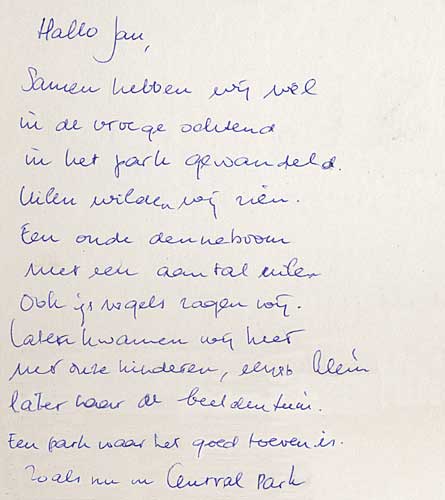 Hallo Jan,
Samen hebben wij wel
in de vroege ochtend
in het park gewandeld.
Uilen wilden wij zien.
Een oude denneboom
met een aantal uilen
Ook ijsvogels zagen wij.
Later kwamen wij hier
met onze kinderen, eerst klein
later naar de beeldentuin.
Een park waar het goed toeven is.
Zoals nu in Central Park